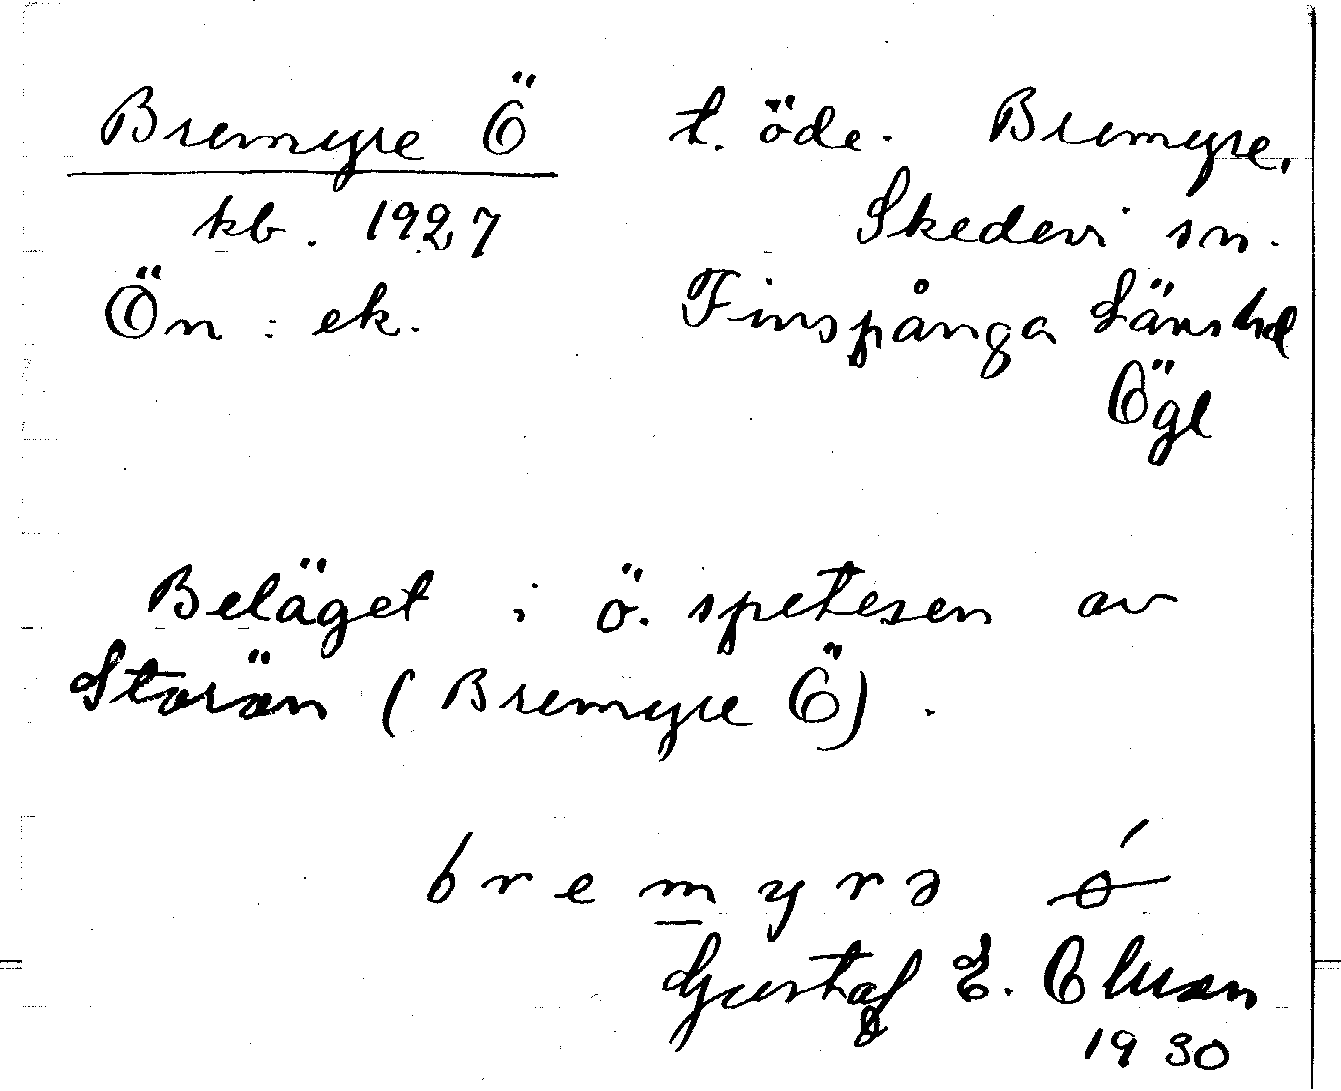 Bremyre Ö t. öde. Bremyre,
kb. 1927 Skedevi sn.
Ön : ek. Finspånga Länshd
Ögl
Beläget i ö. spetesen av
Storön (Bremyre Ö).
bremyrə ö́
Gustaf E. Olsson
1930